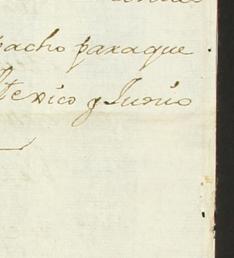 pacho paraque
Mexico y Junio